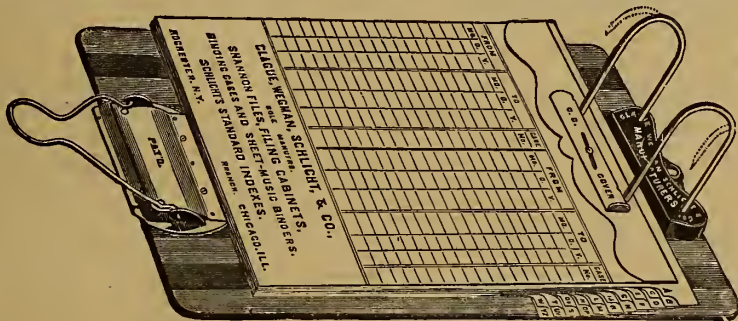 CLAGUE, WEGMAN, SCHLICHT, & CO.,
SOLE MANUFRS.
SHANNON FILES, FILING CABINETS,
BINDING CASES AND SHEET-MUSIC BINDERS.
SCHLICHT'S STANDARD INDEXES.
ROCHESTER, N.Y. BRANCH. CHICAGO, ILL.
PAT'D.
FROM TO CASE FROM TO CASE
MO. D. Y. MO. D. Y. NO. MO. D. Y. MO. D. Y. NO.
COVER
MANUFACTURERS